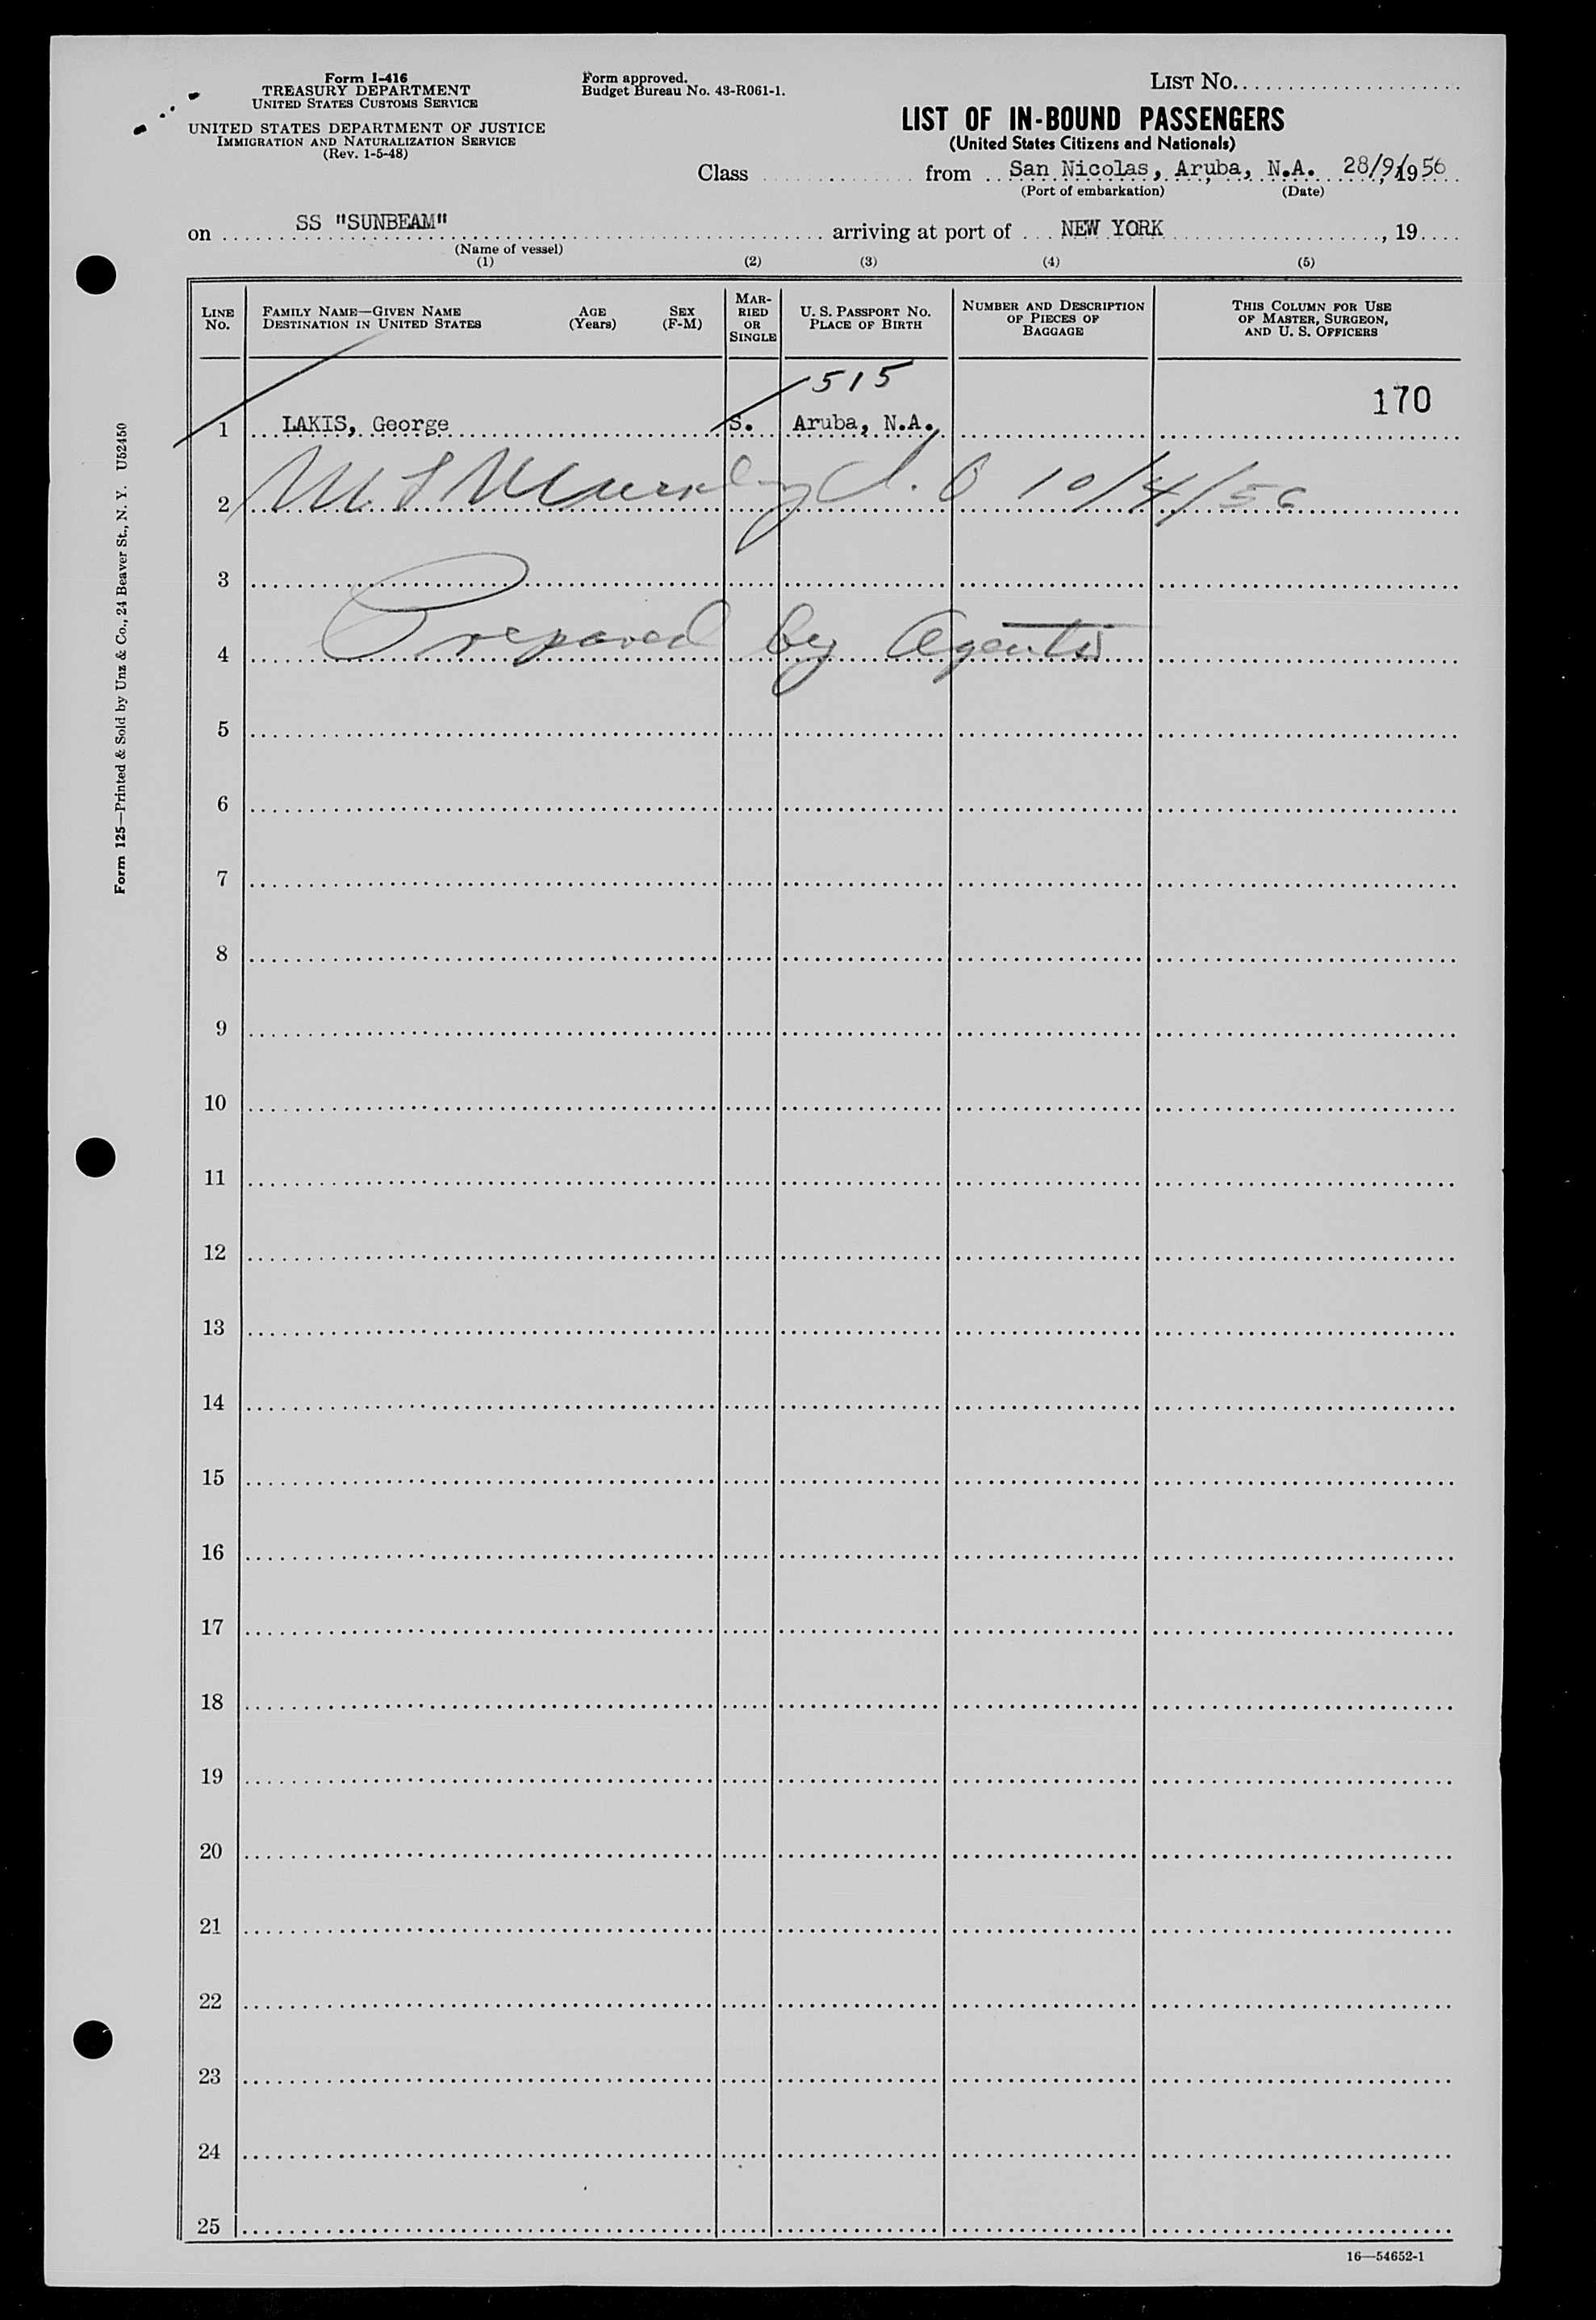 Form I-416
TREASURY DEPARTMENT
UNITED STATES CUSTOMS SERVICE
UNITED STATES DEPARTMENT OF JUSTICE
IMMIGRATION AND NATURALIZATION SERVICE
(Rev. 1-5-48)
Form approved.
Budget Bureau No. 43-R061-1.
LIST No.
LIST OF IN-BOUND PASSENGERS
(United States Citizens and Nationals)
Class from San Nicolas, Aruba, N.A. 28/9/1956
(Port of embarkation) (Date)
on SS "SUNBEAM" arriving at port of NEW YORK, 19
(Name of vessel)
(1) (2) (3) (4) (5)
LINE No.
FAMILY NAME—GIVEN NAME
DESTINATION IN UNITED STATES
AGE (Years)
SEX (F-M)
MARRIED OR SINGLE
U. S. PASSPORT NO.
PLACE OF BIRTH
NUMBER AND DESCRIPTION OF PIECES OF BAGGAGE
THIS COLUMN FOR USE OF MASTER, SURGEON, AND U. S. OFFICERS
515
170
1 LAKIS, George S. Aruba, N.A.
2 10/4/56
3
4 Prepared by Agents
5
6
7
8
9
10
11
12
13
14
15
16
17
18
19
20
21
22
23
24
25
16—54652-1
Form 125—Printed & Sold by Unz & Co., 24 Beaver St., N. Y. U52450